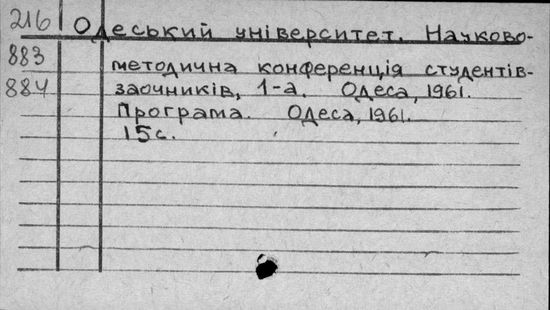 216 Одеський університет. Науково-
883 методична конференція студентів-
884 заочників, 1-а. Одеса, 1961.
Програма. Одеса, 1961.
15с.